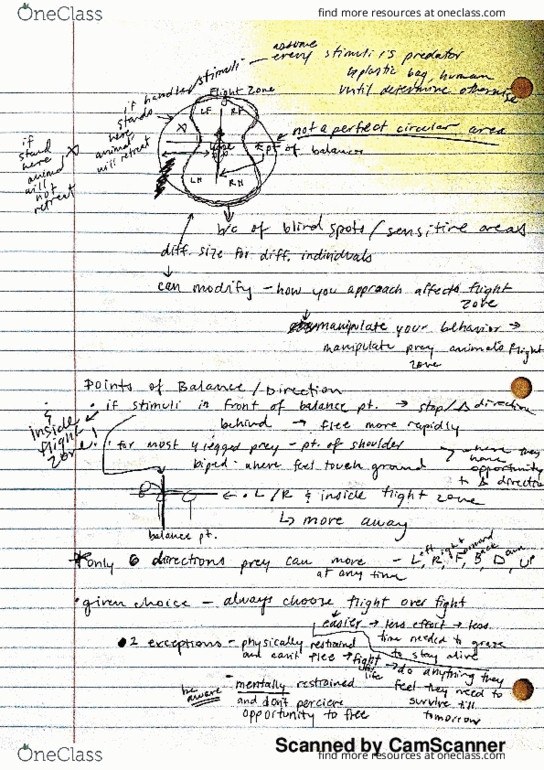 OneClass
find more resources at oneclass.com
stimuli — assume every stimuli is predator
↳ plastic bag, human
until determine otherwise
Flight Zone
if handler stands here animal will retreat
if stand here animal will not retreat
X
X
LF RF
LH RH
← not a perfect circular area
pt of balance
b/c of blind spots / sensitive areas
diff. size for diff. individuals
can modify — how you approach affects flight zone
manipulate your behavior →
manipulate prey animals flight zone
Points of Balance / Direction
& inside flight zone!
• if stimuli in front of balance pt. → stop / Δ direction
behind → flee more rapidly
• for most 4 legged prey - pt. of shoulder
biped - where feet touch ground
where they have opportunity to Δ direction
← • L / R & inside flight zone
↳ move away
balance pt.
* only 6 directions prey can move — Left, Right, Forward, Back, Down, Up
at any time
• given choice — always choose flight over fight
easier → less effort → less time needed to graze to stay alive
• 2 exceptions - physically restrained and can't flee → fight → do anything they feel they need to survive till tomorrow
life
be aware
- mentally restrained and don't perceive opportunity to flee
Scanned by CamScanner
OneClass
find more resources at oneclass.com